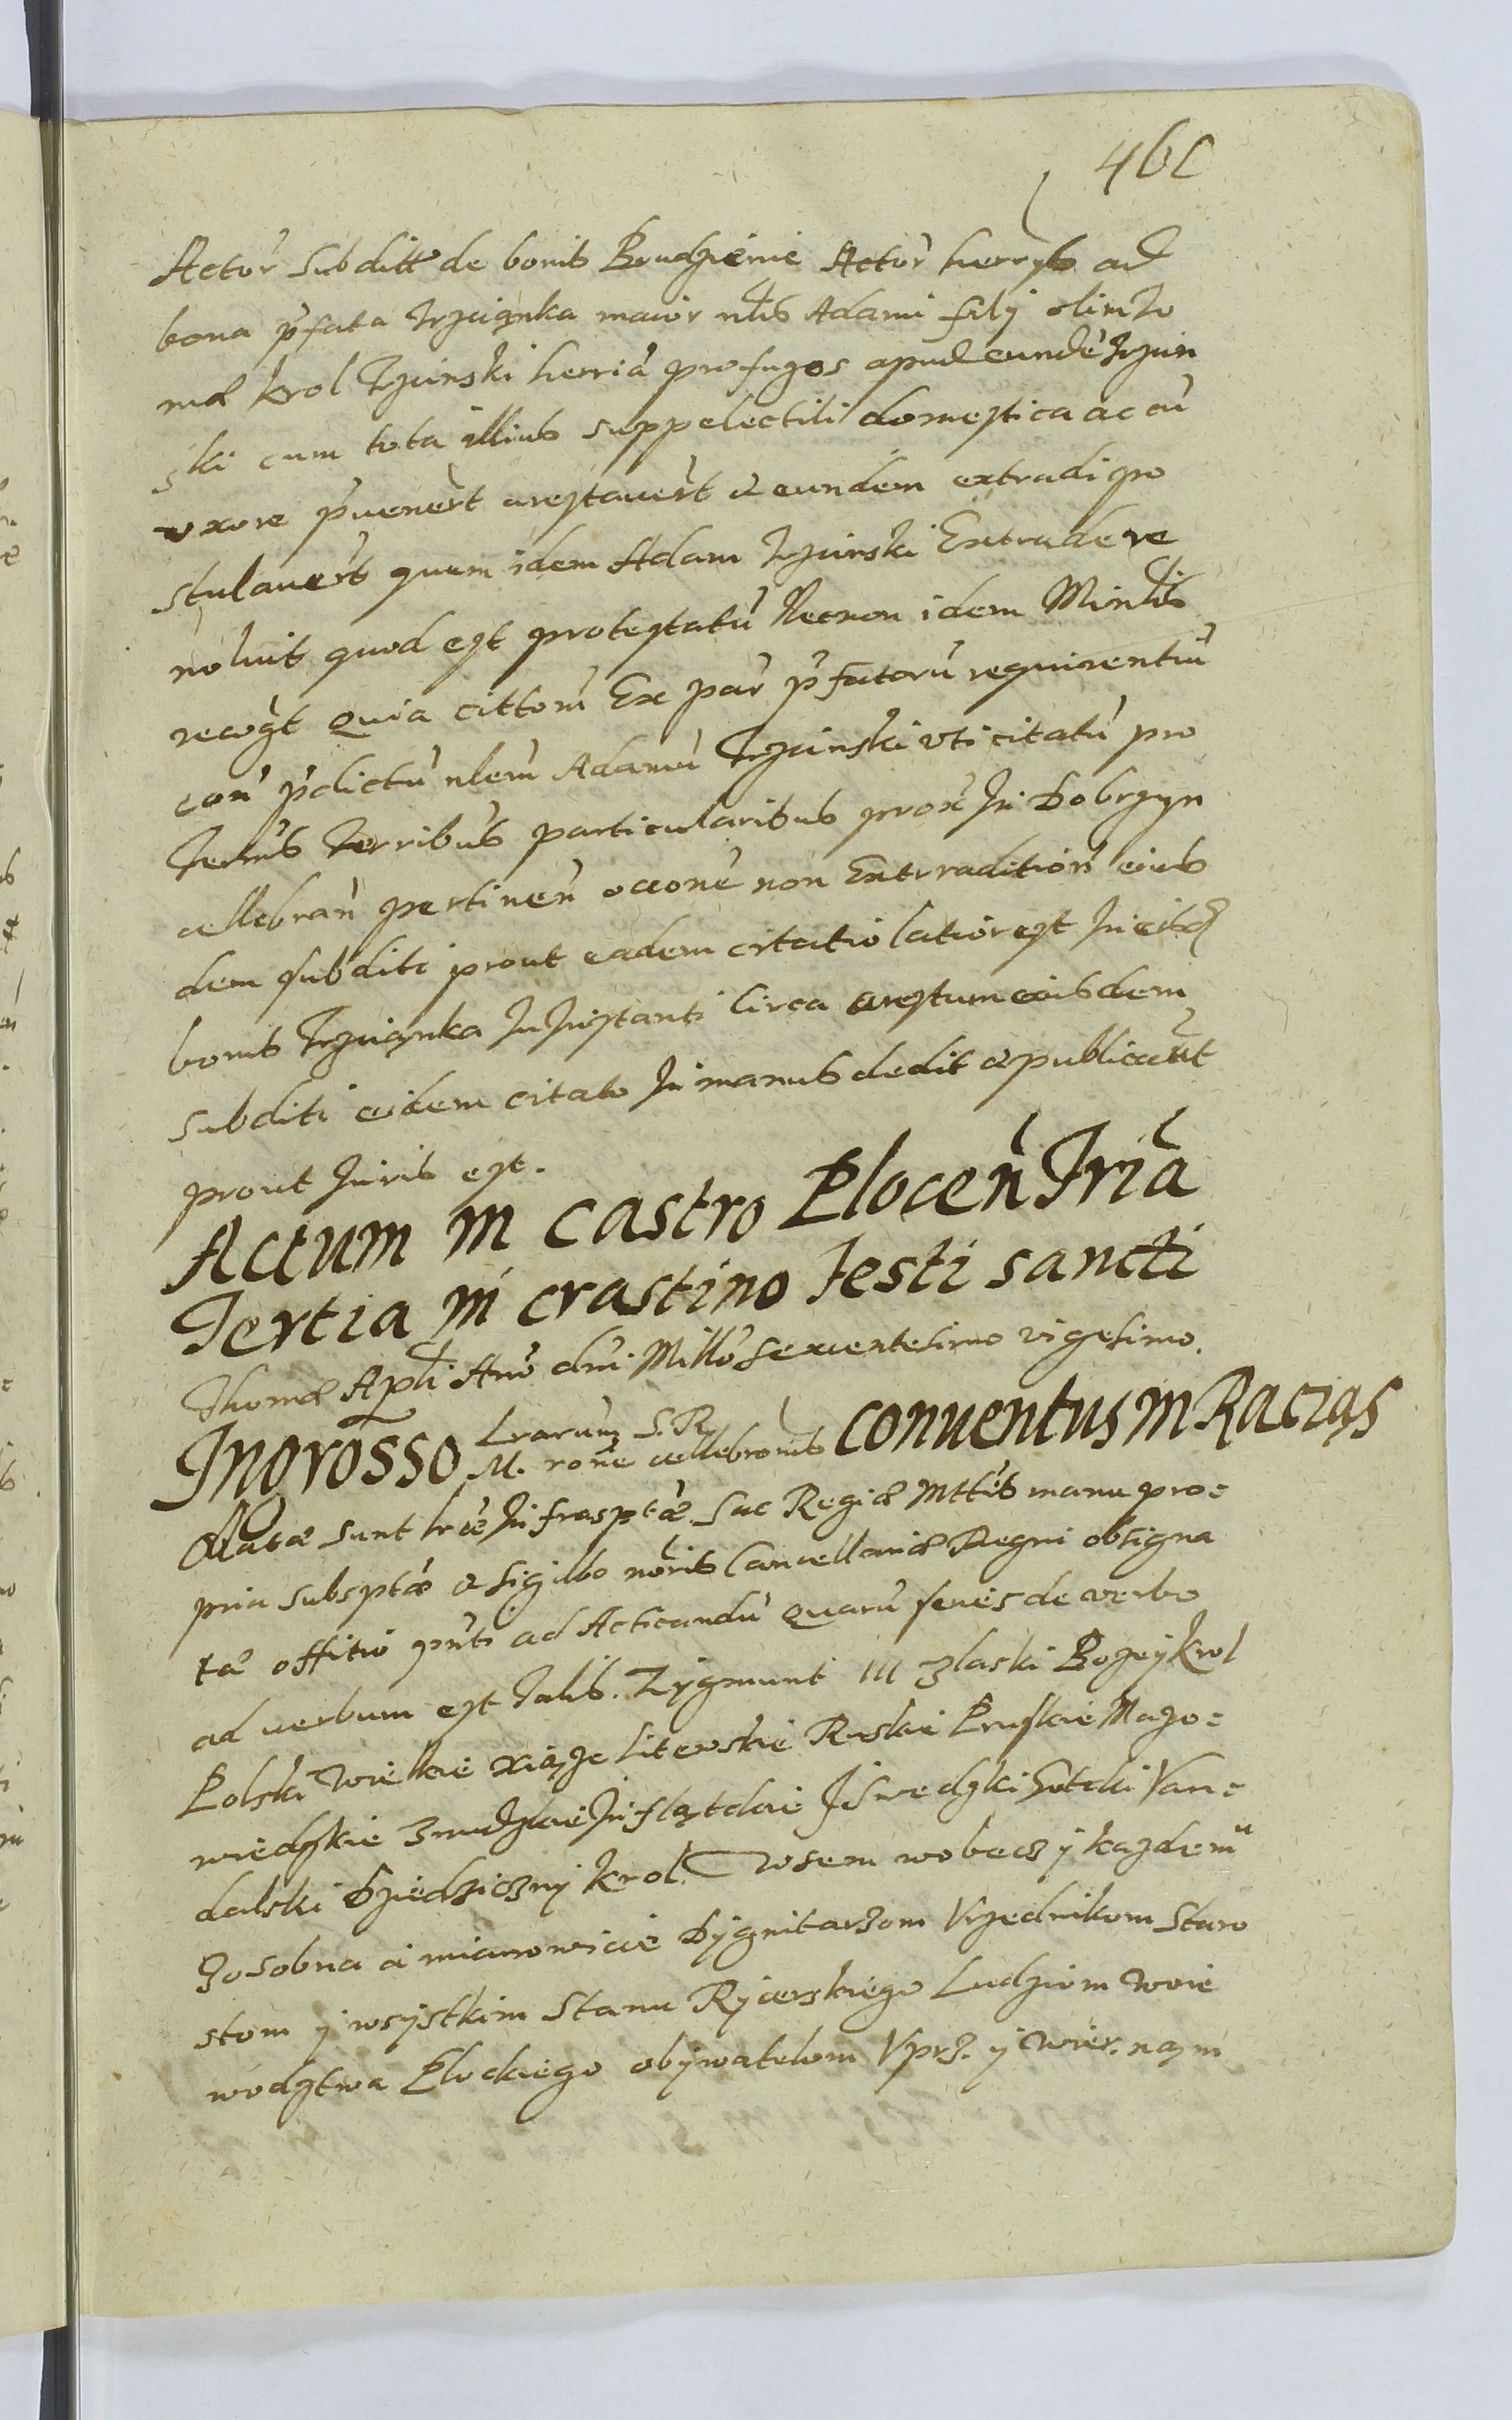 Actor̃ Subditt' de bonis Brudzienie Actor̃ herrijs ad
bona p̃fata Trzcianka maior nlis Adami filij olim Jo
nna Krol Trzcinski herria' profugos apud eunde' Trzcin
ski cum tota illius suppelectili domestica ac cu'
uxore p̃uener̃t arestauer̃t & eundem extradi po
stulauer̃t quem idem Adam Trzcinski Extradere
noluit quod est protestatu' Necnon idem Minlis
recog̃t Quia cittom' Ex par̃ p̃fatoru' requirentiu'
con' p̃dictu' nlem' Adamu' Trzcinski uti citatu' pro
Termis Terribus particularibus prox' In Dobrzyn
cellebran' pertinen' occone' non Extradition' eius
dem subditi prout eadem citatio latior est In eisd
bonis Trzcianka In Instanti Circa arestum eiusdem
subditi eidem citato In manus dedit & publicau̅t
prout Iuris est.
Actum in castro Plocen̄ Fria
Tertia in crastino Festi sancti
Thomæ Apli Ano dni Millo Sexcentesimo vigesimo.
Ingrosso Lrarum S. R. M. rone cellebronis conuentus in Raciąs
Oblatæ sunt lræ Infrasptæ Sac Regiæ Mttis manu pro=
pria subsptæ & sigillo noris Cancellariæ Regni obsigna
tæ offitio pnti ad Acticandu' Quaru' series de verbo
ad uerbum est Talis. Zygmunt III z łaski Bozey Krol
Polski Wielkie Xiąze Litewskie Ruskie Pruskie Mazo=
wiedzkie Zmudzkie Inflątckie J Swedzki Gotcki Van=
dalski Dziedziczny Krol. Wsem wobecz y kazdemu
Zosobna a mianowicie Dygnitarzom Vrzednikom Staro
stom y wsystkim Stanu Rycerskiego Ludziom Woie
wodztwa Plockiego obywatelom Vprz. y wier. nam